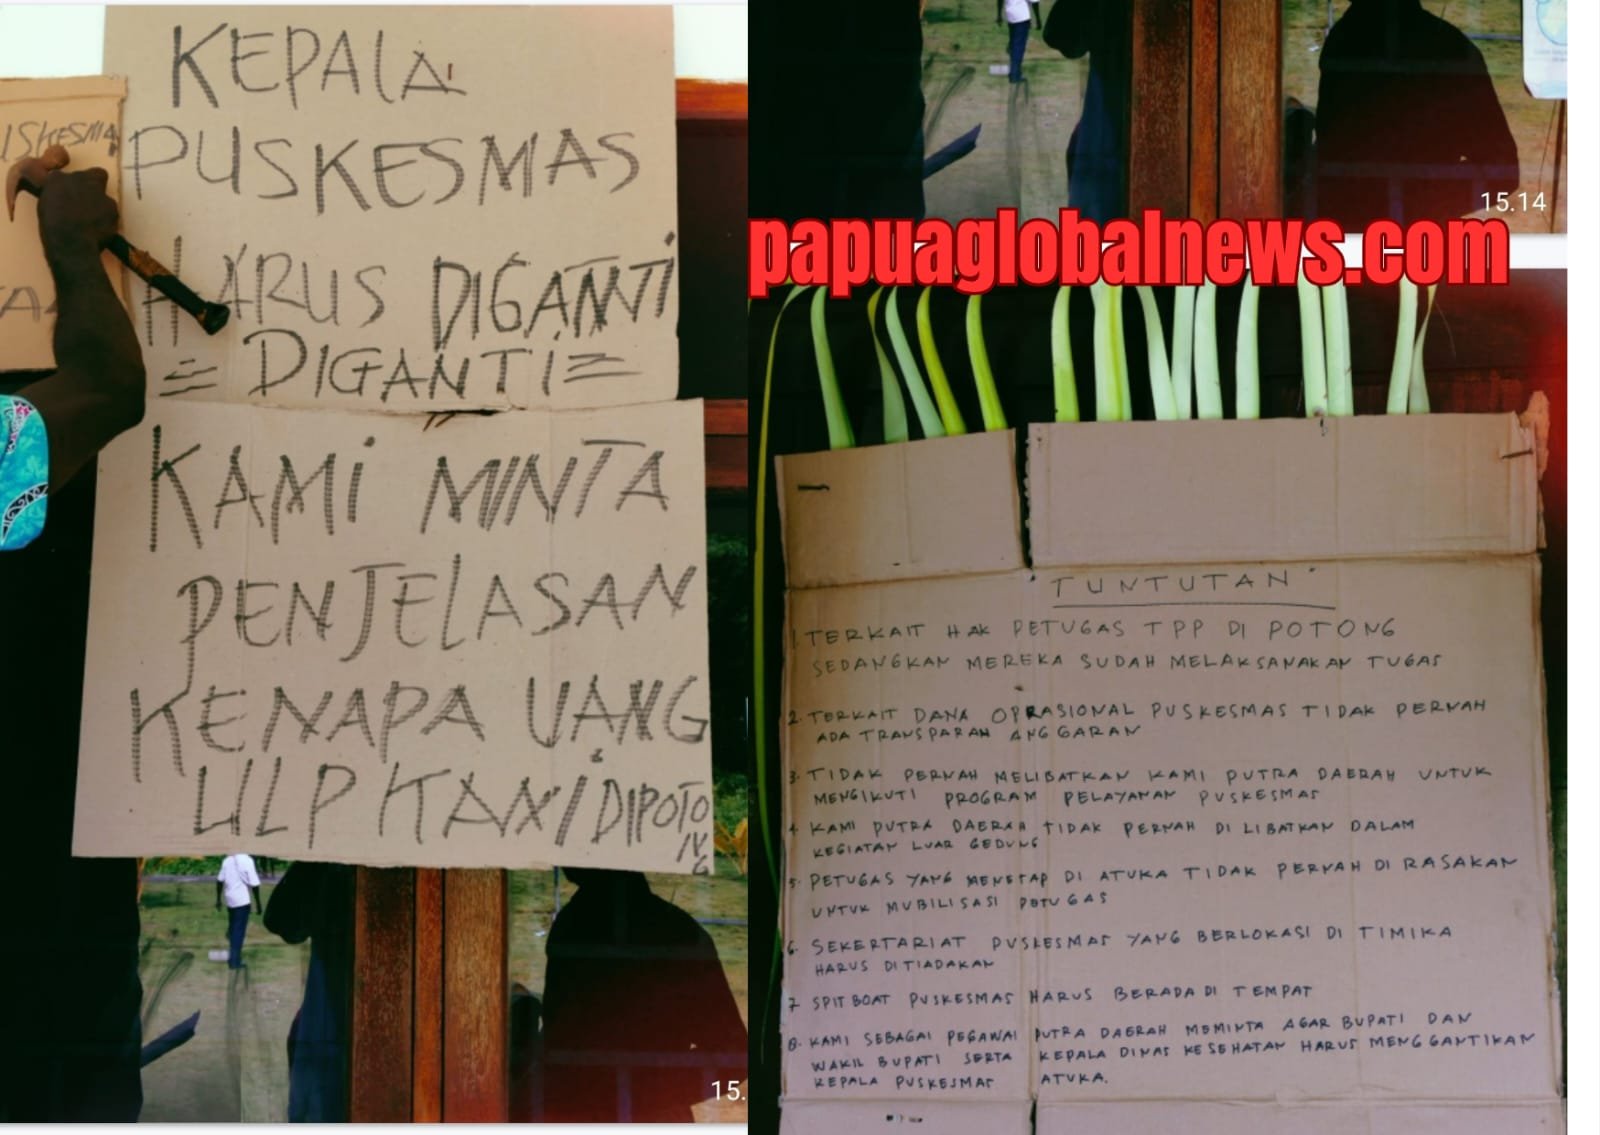 KEPALA
PUSKESMAS
HARUS DIGANTI
= DIGANTI =
KAMI MINTA
PENJELASAN
KENAPA UANG
ULP KAMI DIPOTO
NG
15.
15.14
papuaglobalnews.com
TUNTUTAN
1. TERKAIT HAK PETUGAS TPP DI POTONG
SEDANGKAN MEREKA SUDAH MELAKSANAKAN TUGAS
2. TERKAIT DANA OPRASIONAL PUSKESMAS TIDAK PERNAH
ADA TRANSPARAN ANGGARAN
3. TIDAK PERNAH MELIBATKAN KAMI PUTRA DAERAH UNTUK
MENGIKUTI PROGRAM PELAYANAN PUSKESMAS
4. KAMI PUTRA DAERAH TIDAK PERNAH DI LIBATKAN DALAM
KEGIATAN LUAR GEDUNG
5. PETUGAS YANG MENETAP DI ATUKA TIDAK PERNAH DI RASAKAN
UNTUK MUBILISASI PETUGAS
6. SEKERTARIAT PUSKESMAS YANG BERLOKASI DI TIMIKA
HARUS DITIADAKAN
7. SPIT BOAT PUSKESMAS HARUS BERADA DI TEMPAT
8. KAMI SEBAGAI PEGAWAI PUTRA DAERAH MEMINTA AGAR BUPATI DAN
WAKIL BUPATI SERTA KEPALA DINAS KESEHATAN HARUS MENGGANTIKAN
KEPALA PUSKESMAS ATUKA.